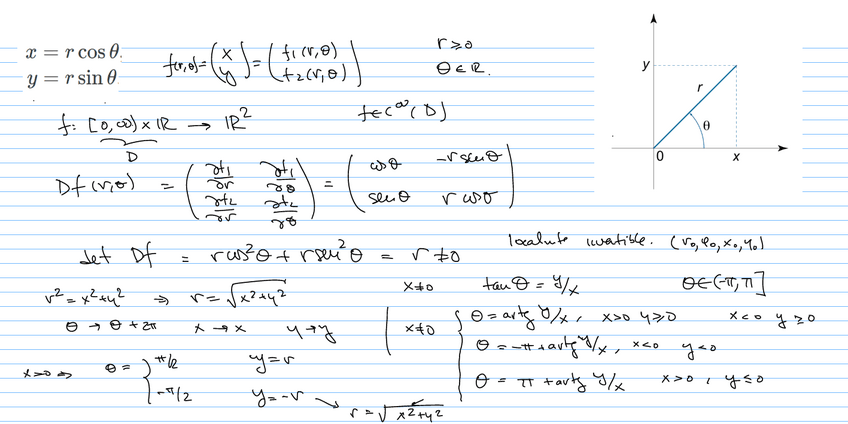 x = r cos θ.
y = r sin θ
f(r,θ) = (x y) = (f₁(r,θ) f₂(r,θ))
r ≥ 0
θ ∈ ℝ.
f: [0,∞) × ℝ → ℝ²
D
f ∈ C^∞(D)
Df(r,θ) = (∂f₁/∂r ∂f₁/∂θ ∂f₂/∂r ∂f₂/∂θ) = (cos θ -r sen θ sen θ r cos θ)
y
r
θ
0
x
det Df = r cos²θ + r sen²θ = r ≠ 0
localmente invertible. (r₀, φ₀, x₀, y₀)
r² = x² + y² ⇒ r = √(x² + y²)
x ≠ 0 tan θ = y/x θ ∈ (-π, π]
θ → θ + 2π x → x y → y
x ≠ 0 { θ = artg y/x, x>0 y≥0 x<0 y≥0
θ = -π + artg y/x, x<0 y<0
θ = π + artg y/x x>0, y≤0
x=0 ⇒ θ = { π/2 y = r
-π/2 y = -r
r = √(x² + y²)